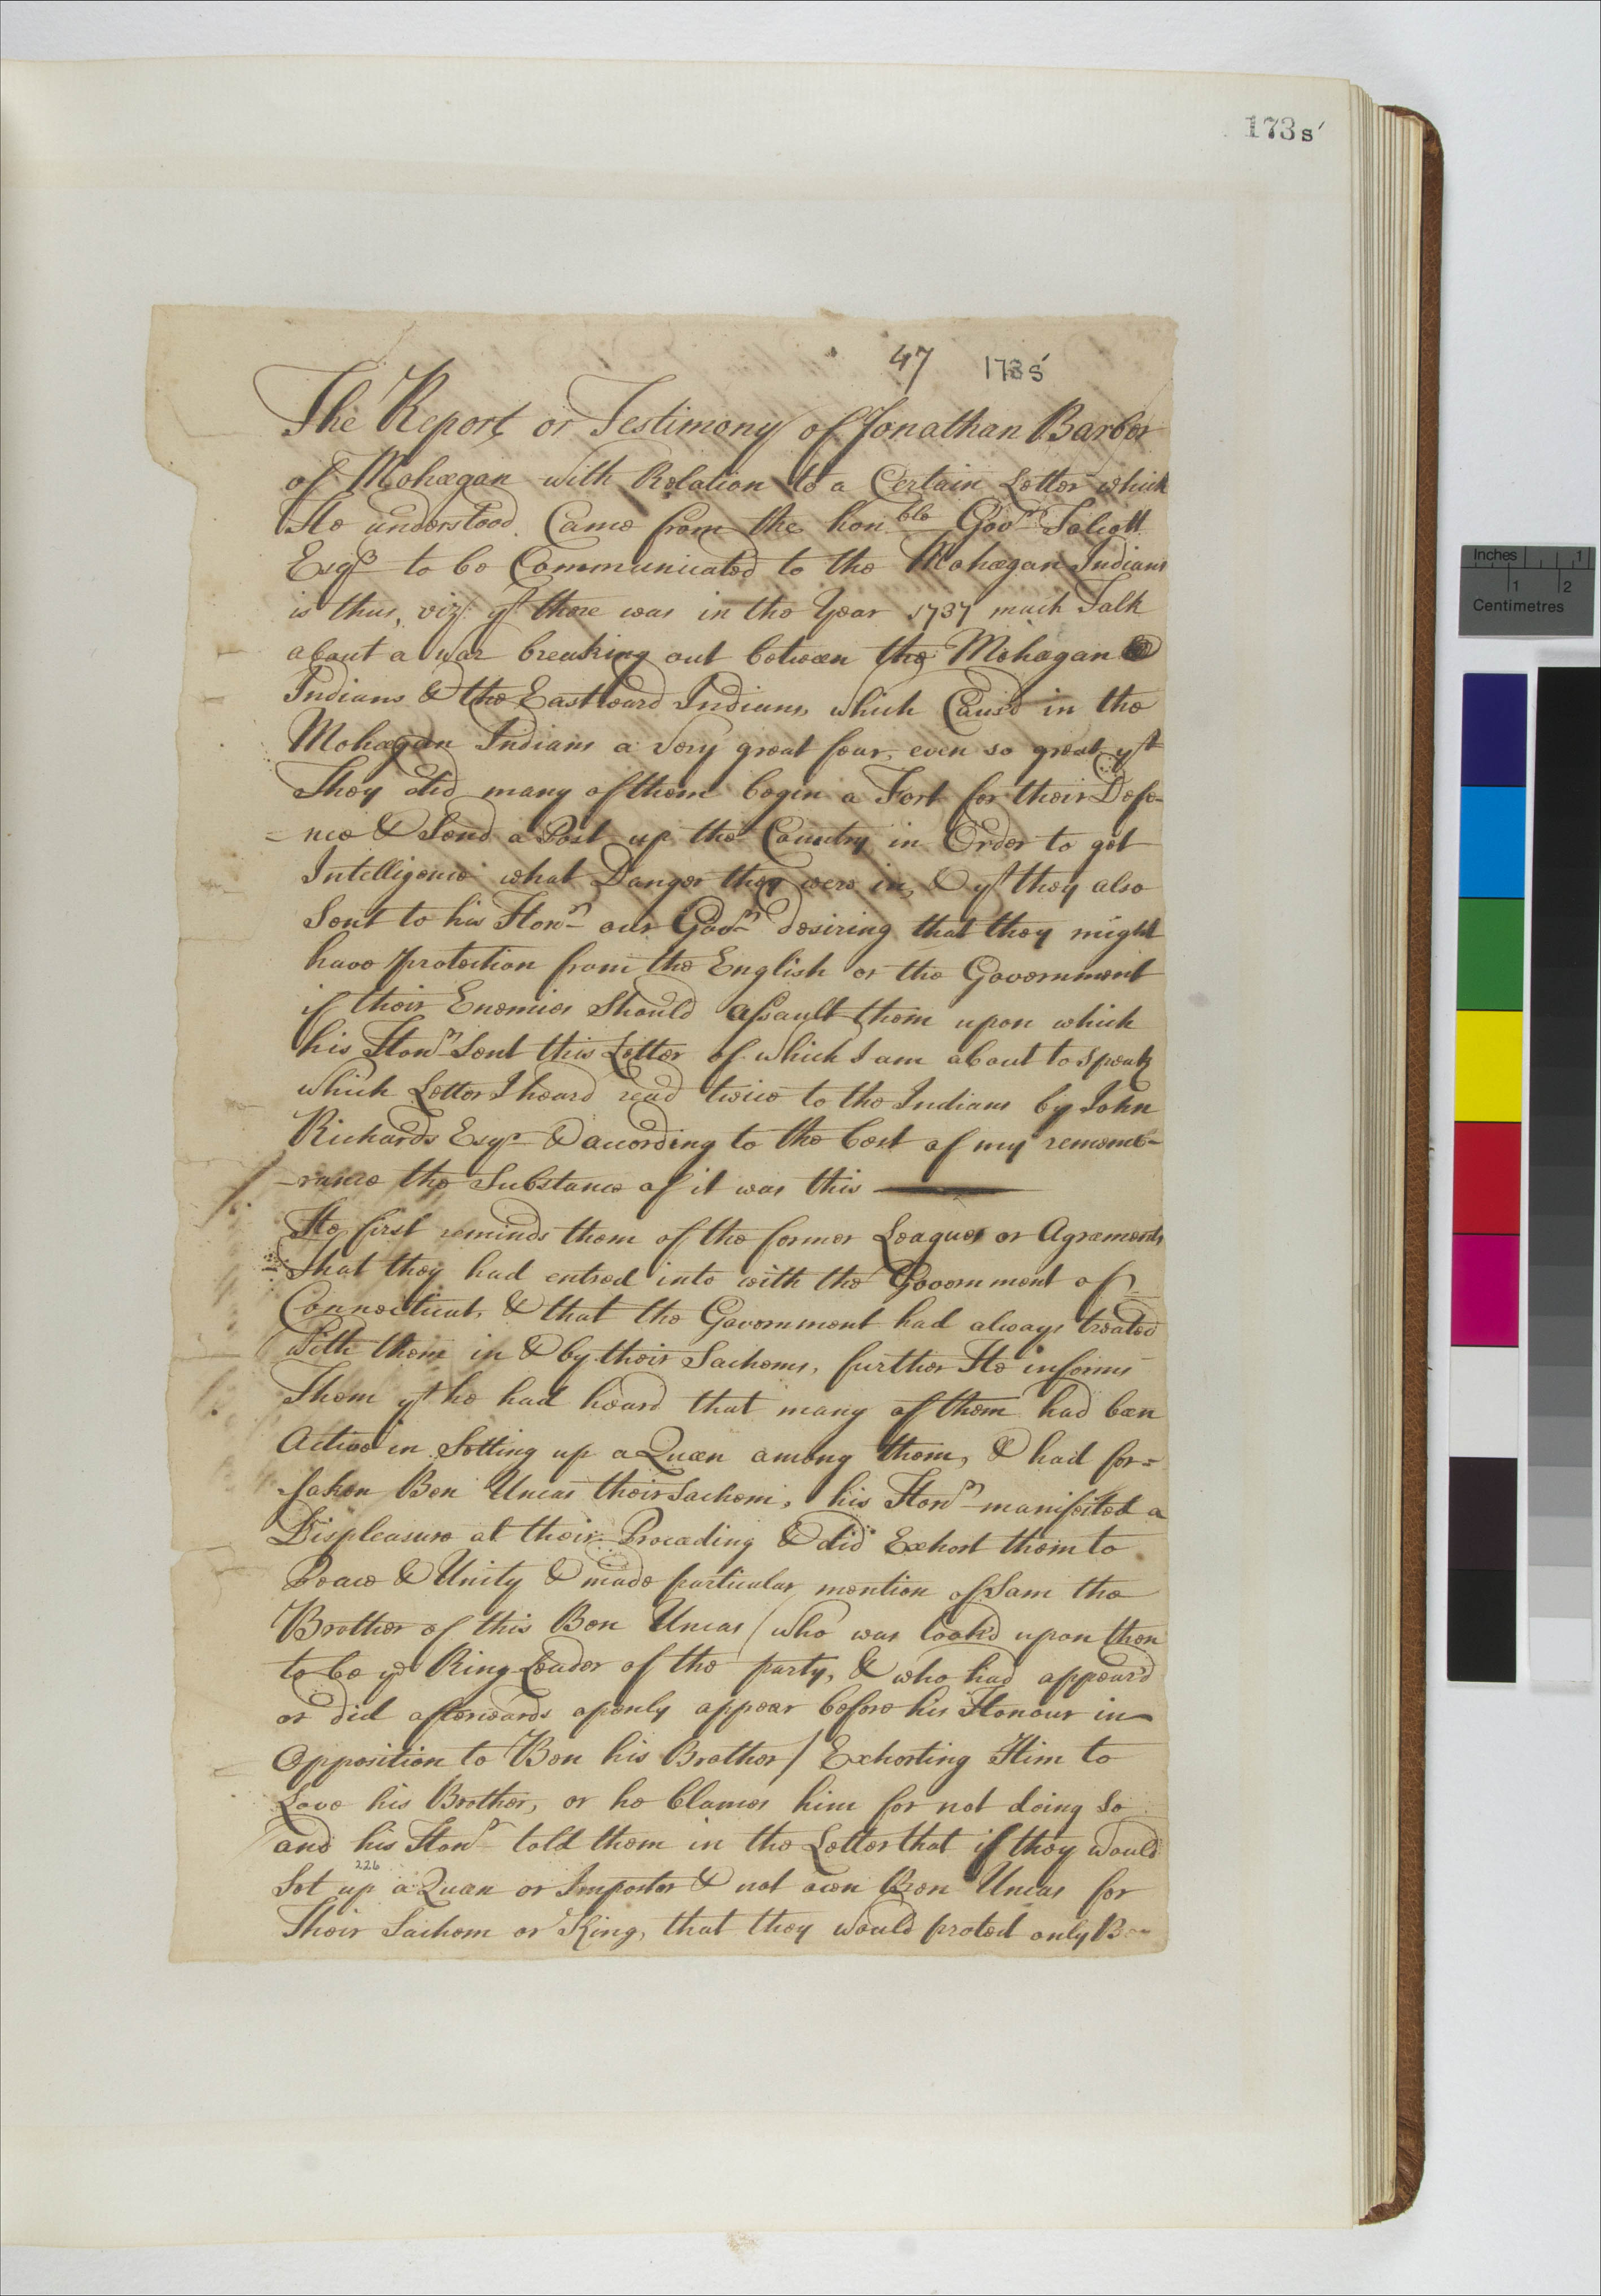 173 s'
47 173 s'
The Report or Testimony of Jonathan Barber
of Mohegan with Relation to a Certain Letter which
He understood Came from the hon.ble Govr Talcott
Esqr to be Communicated to the Mohegan Indians
is thus, viz: yt there was in the Year 1737 much Talk
about a war breaking out between the Mohegan
Indians & the Eastward Indians, which Caus'd in the
Mohegan Indians a Very great fear, even so great, yt
They did many of them begin a Fort for their Defe-
-nce & Send a Post up the Country in Order to get
Intelligence what Danger they were in, & yt they also
Sent to his Honr our Govr desiring that they might
have protection from the English or the Government
if their Enemies Should assault them upon which
his Honr Sent this Letter of which I am about to speak
which Letter I heard read twice to the Indians by John
Richards Esqr & according to the best of my rememb-
-rance the Substance of it was this
He first reminds them of the former Leagues or Agreements
that they had entred into with the Government of
Connecticut, & that the Government had always treated
With them in & by their Sachems, further He informs
Them yt he had heard that many of them had been
Active in Setting up a Queen among them, & had for=
-saken Ben Uncas their Sachem, his Honr manifested a
Displeasure at their Proceeding & did Exhort them to
Peace & Unity & made particular mention of Sam the
Brother of this Ben Uncas (who was look'd upon then
to be ye Ring-Leader of the party, & who had appear'd
or did afterwards openly appear before his Honour in
Opposition to Ben his Brother) Exhorting Him to
Love his Brother, or he blames him for not doing So
and his Honr told them in the Letter that if they would
226
Set up a Quen or Impostor & not own Ben Uncas for
Their Sachem or King, that they would protect only Ben